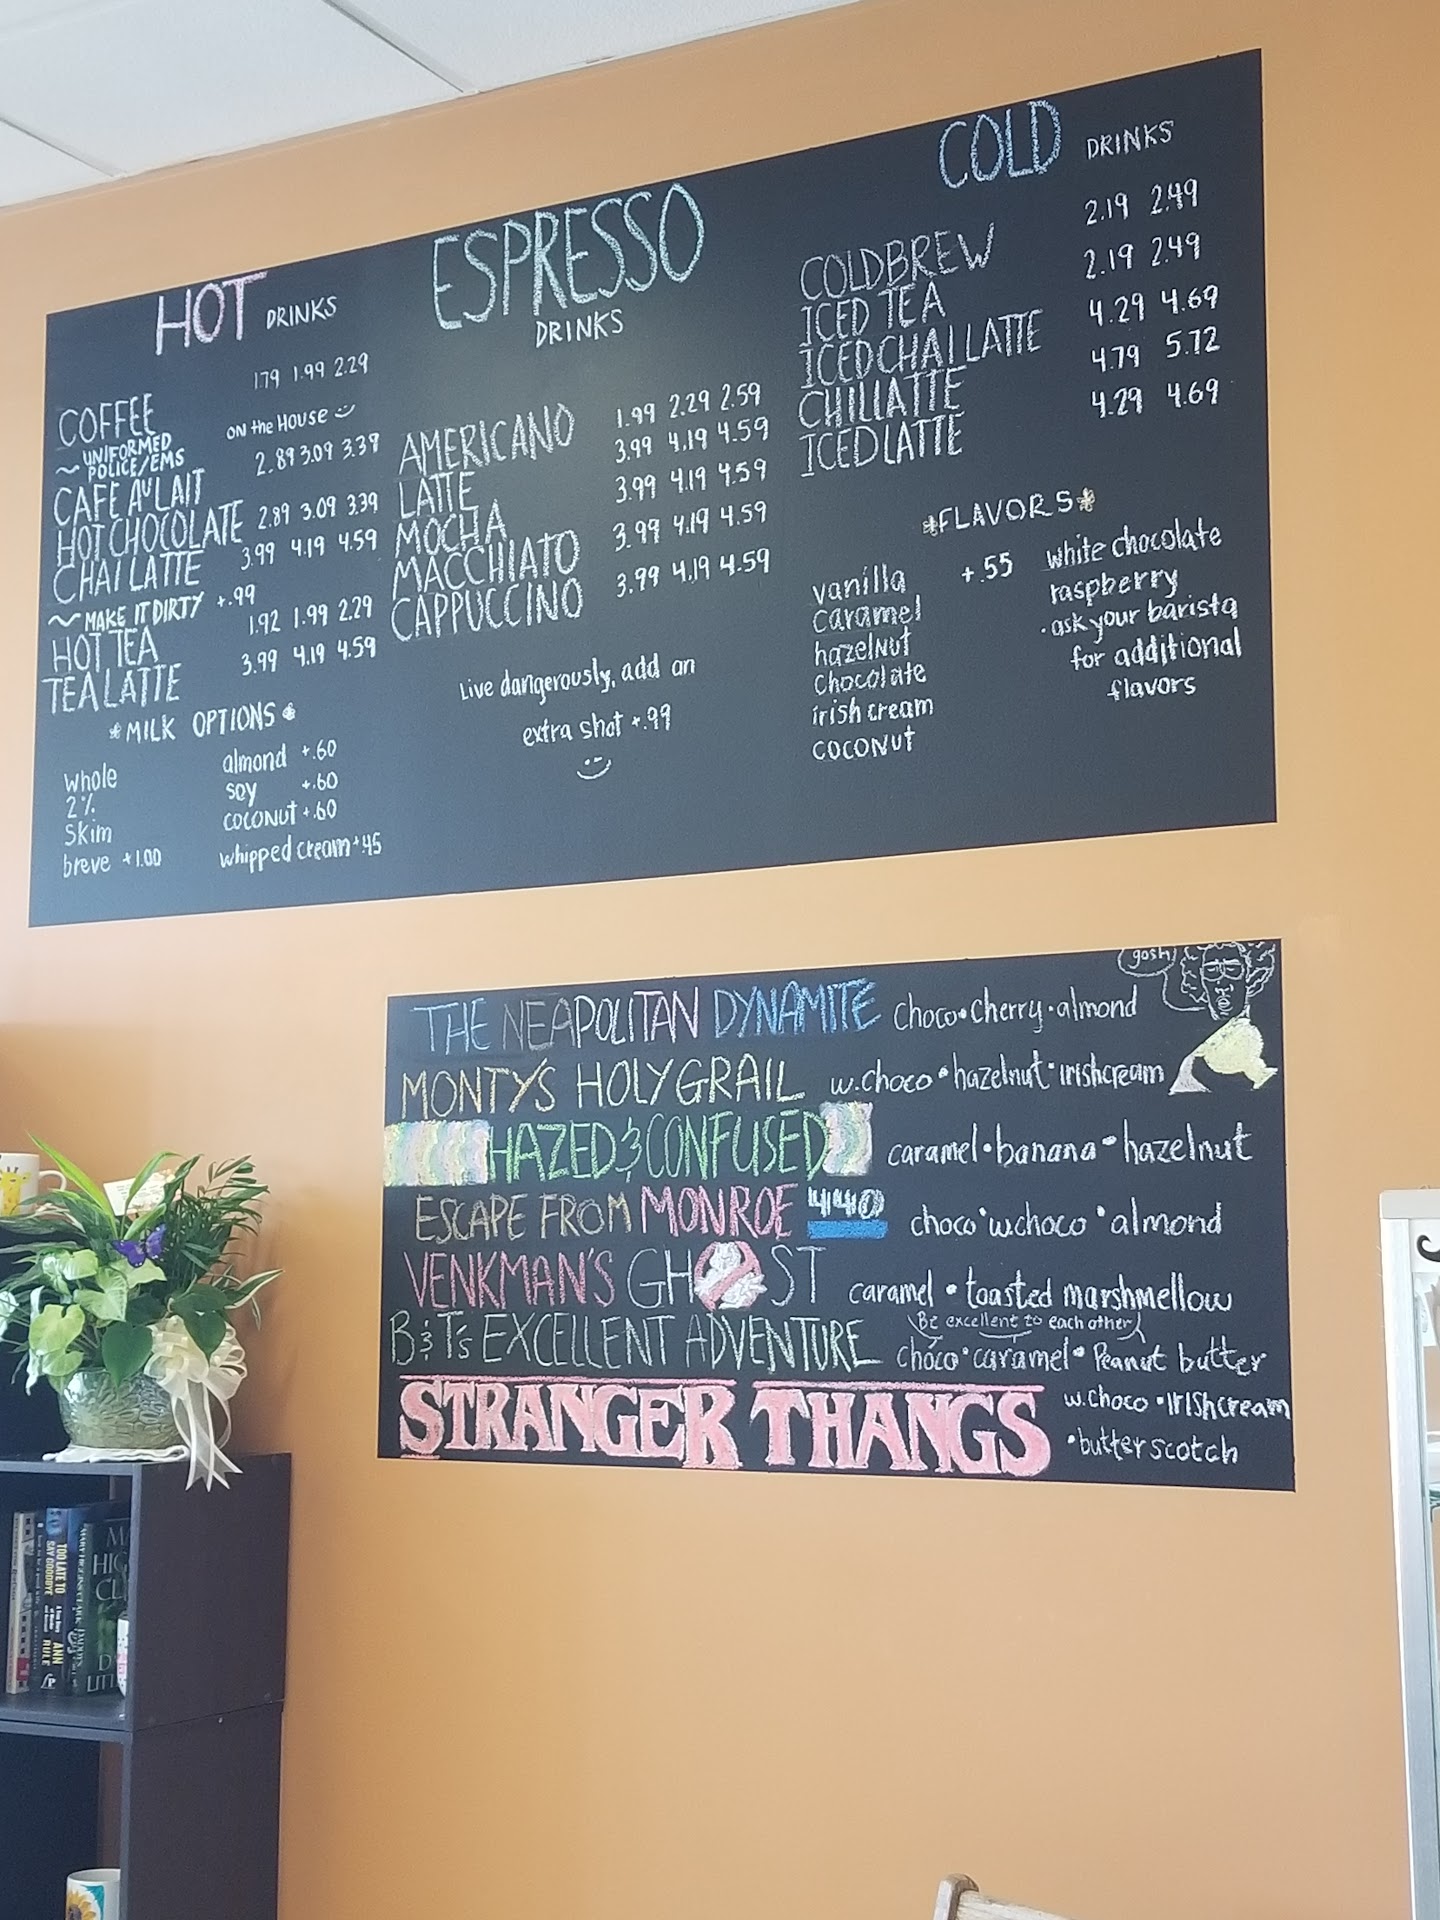 HOT DRINKS
COFFEE 1.79 1.99 2.29
~ UNIFORMED POLICE/EMS ON the HOUSE
CAFE AU LAIT 2.89 3.09 3.39
HOT CHOCOLATE 2.89 3.09 3.39
CHAI LATTE 3.99 4.19 4.59
~ MAKE IT DIRTY +.99
HOT TEA 1.92 1.99 2.29
TEA LATTE 3.99 4.19 4.59
*MILK OPTIONS*
whole
2%
skim
breve +1.00
almond +.60
soy +.60
coconut +.60
whipped cream +.45
ESPRESSO
DRINKS
AMERICANO 1.99 2.29 2.59
LATTE 3.99 4.19 4.59
MOCHA 3.99 4.19 4.59
MACCHIATO 3.99 4.19 4.59
CAPPUCCINO 3.99 4.19 4.59
Live dangerously, add an
extra shot +.99
COLD DRINKS
COLDBREW 2.19 2.49
ICED TEA 2.19 2.49
ICED CHAI LATTE 4.29 4.69
CHILLATTE 4.79 5.72
ICED LATTE 4.29 4.69
*FLAVORS*
vanilla +.55
caramel
hazelnut
chocolate
irish cream
coconut
white chocolate
raspberry
·ask your barista
for additional
flavors
gosh!
THE NEAPOLITAN DYNAMITE choco•cherry•almond
MONTY'S HOLY GRAIL w.choco•hazelnut•irishcream
HAZED & CONFUSED caramel•banana•hazelnut
ESCAPE FROM MONROE 440 choco•w.choco•almond
VENKMAN'S GHOST caramel•toasted marshmellow
Be excellent to each other
B&T's EXCELLENT ADVENTURE choco•caramel•Peanut butter
STRANGER THANGS w.choco•irishcream
•butterscotch
TOO LATE TO
SAY GOODBYE
ANN
RULE
MARY HIGGINS CLARK